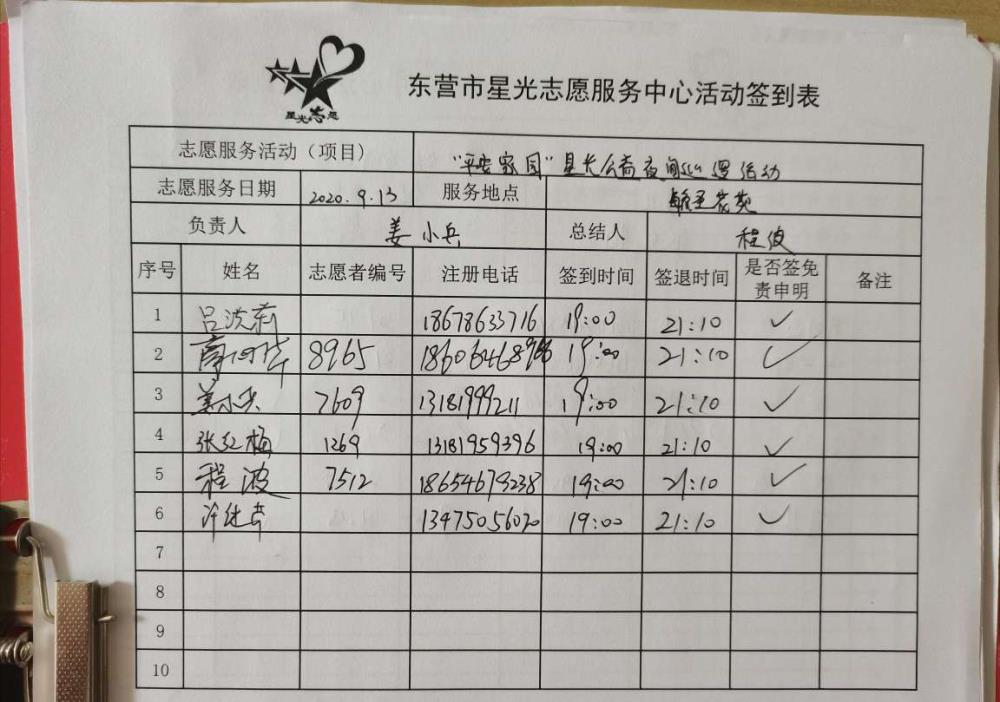 星光志愿
东营市星光志愿服务中心活动签到表
志愿服务活动（项目） "平安家园"星光公益夜间巡逻活动
志愿服务日期 2020.9.13 服务地点
负责人 姜小兵 总结人 程波
序号 姓名 志愿者编号 注册电话 签到时间 签退时间 是否签免责申明 备注
1 吕洪莉 18678633716 19:00 21:10 ✓
2 8965 19:00 21:10 ✓
3 姜小兵 7609 13181999211 19:00 21:10 ✓
4 张红梅 1269 13181959396 19:00 21:10 ✓
5 程波 7512 18654679238 19:00 21:10 ✓
6 13475056020 19:00 21:10 ✓
7
8
9
10